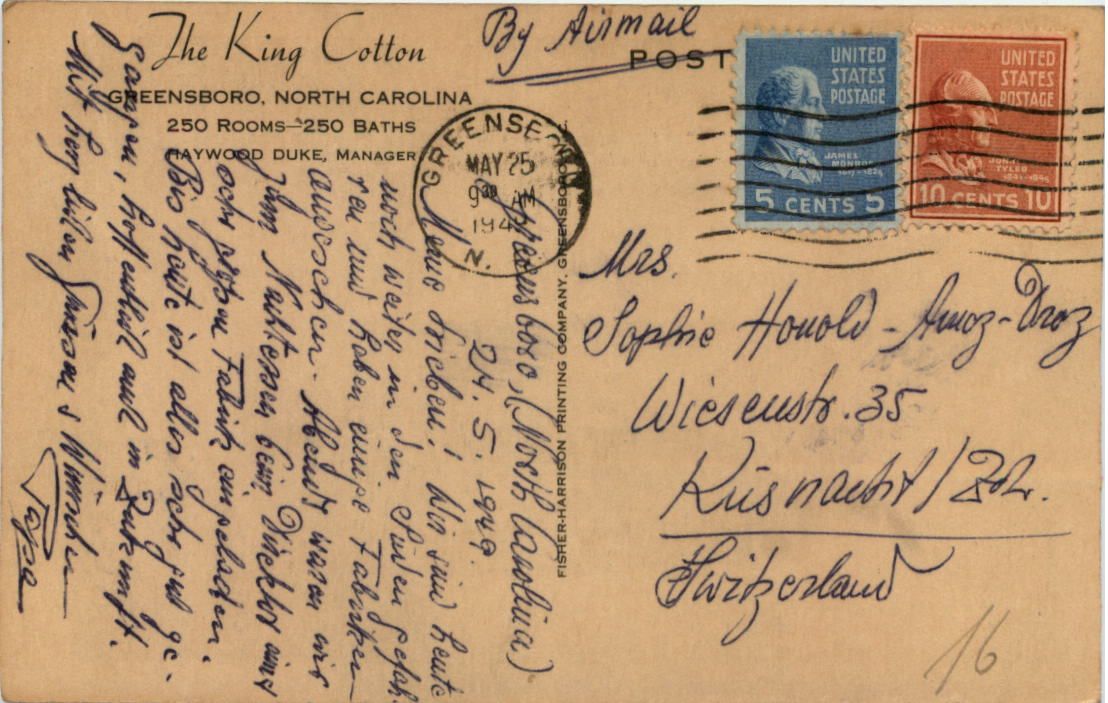 The King Cotton
GREENSBORO, NORTH CAROLINA
250 ROOMS—250 BATHS
HAYWOOD DUKE, MANAGER
By Airmail
POST
GREENSBORO
MAY 25
9 30 AM
194
N.
UNITED
STATES
POSTAGE
JAMES
MONROE
1817-1825
5 CENTS 5
UNITED
STATES
POSTAGE
JOHN
TYLER
1841-1845
10 CENTS 10
Greensboro, (North Carolina)
24. 5. 1949.
Meine Lieben! Wir sind heute
noch weiter in den Süden gefah-
ren und haben einige Fabriken
angesehen. Abends waren wir
zum Nachtessen beim Direktor einer
sehr großen Fabrik eingeladen.
Bis heute ist alles sehr gut ge-
gangen, hoffentlich auch in Zukunft.
Mit herzlichen Grüssen &
Papa
FISHER-HARRISON PRINTING COMPANY, GREENSBORO, N.C.
Mrs.
Sophie Honold-Amoz-Droz
Wiesenstr. 35
Küsnacht/Zch.
Switzerland
16